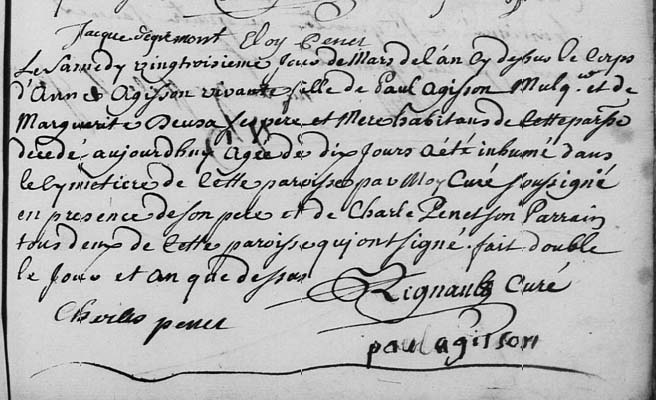 Jacque Degremont Eloy Penet
Le Samedy vingtroisieme Jour de Mars de l'an cy dessus le Corps
d'Anne Agisson vivante fille de Paul Agisson Mulq.er et de
Marguerite Deusa ses pere et Mere habitans de Cette paroisse
decedé aujourdhuy Agée de dix Jours a été inhumé dans
le Cymetiere de Cette paroisse par Moy Curé Soussigné
en presence de son pere et de Charle Penet son Parrain
tous deux de Cette paroisse qui ont signé. fait double
le Jour et an que dessus
Rignault Curé
Charles penet
paul agisson